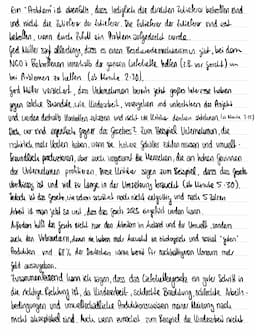 Ein "Problem" ist ebenfalls, dass lediglich die direkten Zulieferer betroffen sind
und nicht die Zulieferer der Zulieferer. Die Zulieferer der Zulieferer sind erst
betroffen, wenn durch Zufall ein Problem aufgedeckt wurde.
Gerd Müller sagt allerdings, dass es einen Beschwerdemechanismus gibt, bei dem
NGO's Arbeiterinnen innerhalb der ganzen Lieferkette helfen (z.B. vor Gericht) um
bei Problemen zu helfen (ab Minute 2:30).
Gerd Müller versichert, dass Unternehmen bereits jetzt großes Interesse haben
gegen solche Umstände, wie Kinderarbeit, vorzugehen und unterstützen das Projekt
und werden deshalb Kontrollen zulassen und nicht die Zulieferer
Doch, wer sind eigentlich gegen das Gesetz? Zum Beispiel Unternehmen, die
natürlich mehr Kosten haben, wenn sie höhere Schulen und umwelt-
freundlich produzieren, aber auch insgesamt die Menschen, die an hohen Gewinnen
der Unternehmen profitieren. Diese Kritiker sagen zum Beispiel, dass das Gesetz
überhastet ist und viel zu lange in der Umsetzung braucht (ab Minute 5:30).
Jedoch ist das Gesetz, nachdem noch nicht endgültig und nach 5 Jahren
Arbeit ist man jetzt so weit, dass das Gesetz 2023 eingeführt werden kann.
Außerdem hilft das Gesetz nicht nur den Arbeitern im Ausland und der Umwelt, sondern
auch den Verbrauchern, denn sie haben mehr Auswahl an ökologisch und sozial "guten"
Produkten und 68% der Deutschen wären bereit für nachhaltigeren Konsum mehr
Geld auszugeben.
Zusammenfassend kann ich sagen, dass das Lieferkettengesetz ein guter Schritt in
die richtige Richtung ist, da Kinderarbeit, schlechte Bezahlung, schlechte Arbeits-
bedingungen und umweltschädliche Produktionsweisen meiner Meinung nach
nicht akzeptabel sind. Auch wenn zum Beispiel die Kinderarbeit nicht